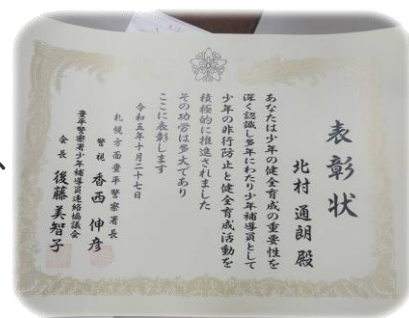 表彰状
北村通朗殿
あなたは少年の健全育成の重要性を
深く認識し多年にわたり少年補導員として
少年の非行防止と健全育成活動を
積極的に推進されました
その功労は多大であり
ここに表彰します
令和五年十月二十七日
札幌方面豊平警察署長
警視 香西伸彦
豊平警察署少年補導員連絡協議会
会長 後藤美智子